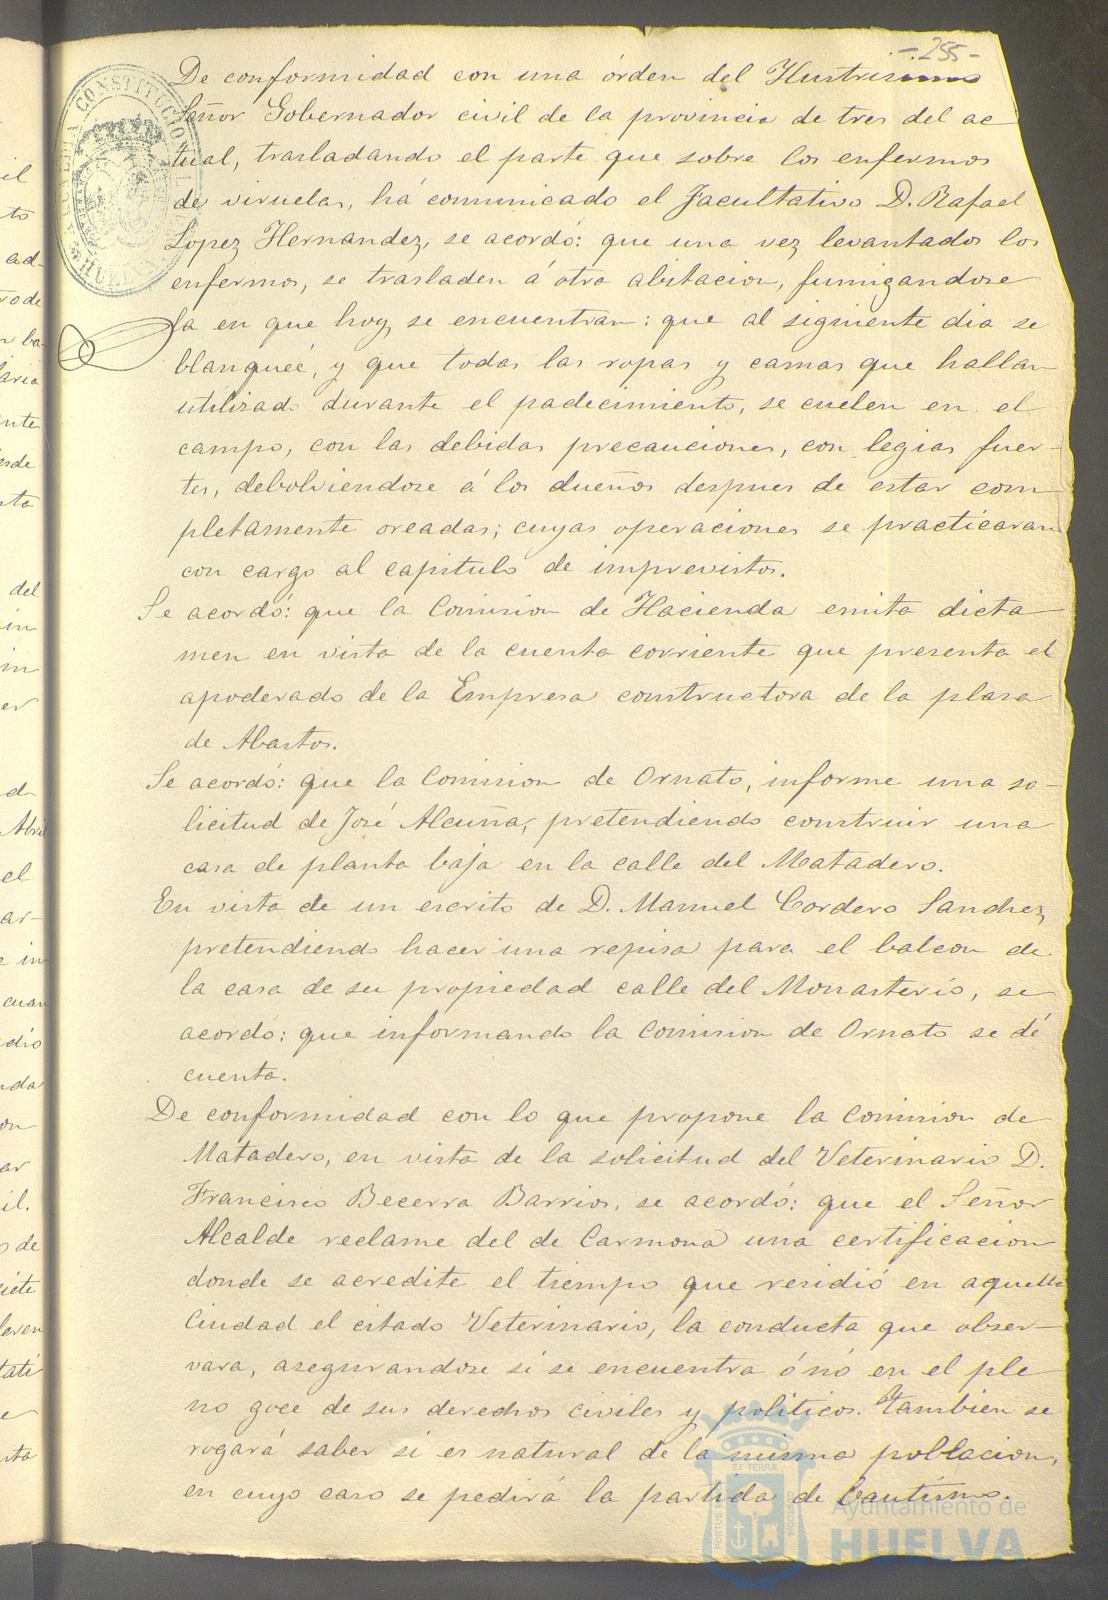 -.255-
De conformidad con una órden del Ilustrisimo
Señor Gobernador civil de la provincia de tres del ac
tual, trasladando el parte que sobre los enfermos
de viruelas, há comunicado el Facultativo D. Rafael
Lopez Hernandez, se acordó: que una vez levantados los
enfermos, se trasladen á otra abitacion, fumigandose
la en que hoy se encuentran: que al siguiente dia se
blanqueé, y que todas las ropas y camas que hallan
utilizado durante el padecimiento, se cuelen en el
campo, con las debidas precauciones, con legias fuer-
tes, debolviendose á los dueños despues de estar com
pletamente oreadas; cuyas operaciones se practicaran
con cargo al capitulo de imprevistos.
Se acordó: que la Comision de Hacienda emita dicta
men en vista de la cuenta corriente que presenta el
apoderado de la Empresa constructora de la plasa
de Abastos.
Se acordó: que la Comision de Ornato, informe una so-
licitud de José Alcuña, pretendiendo construir una
casa de planta baja en la calle del Matadero.
En vista de un escrito de D. Manuel Cordero Sanchez,
pretendiendo hacer una repisa para el balcon de
la casa de su propiedad calle del Monasterio, se
acordó: que informando la Comision de Ornato se dé
cuenta.
De conformidad con lo que propone la Comision de
Matadero, en vista de la solicitud del Veterinario D.
Francisco Becerra Barrios, se acordó: que el Señor
Alcalde reclame del de Carmona una certificacion
donde se acredite el tiempo que residió en aquella
Ciudad el citado Veterinario, la conducta que obser-
vara, asegurandose si se encuentra ó nó en el ple
no goce de sus derechos civiles y politicos. Tambien se
rogará saber si es natural de la misma poblacion,
en cuyo caso se pedirá la partida de bautismo.
ALCALDIA CONSTITUCIONAL
HUELVA
Ayuntamiento de
HUELVA